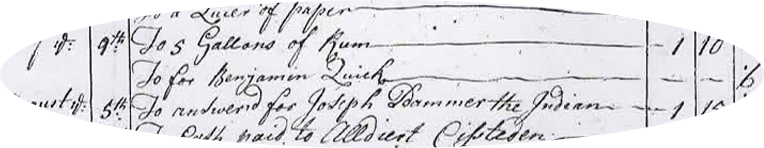 To a Quier of paper
9th To 5 Gallons of Rum 1 10
To for Benjamin Quick
August d: 5th To answer'd for Joseph Dammer the Indian 1 10
To Cash paid to Alldiert